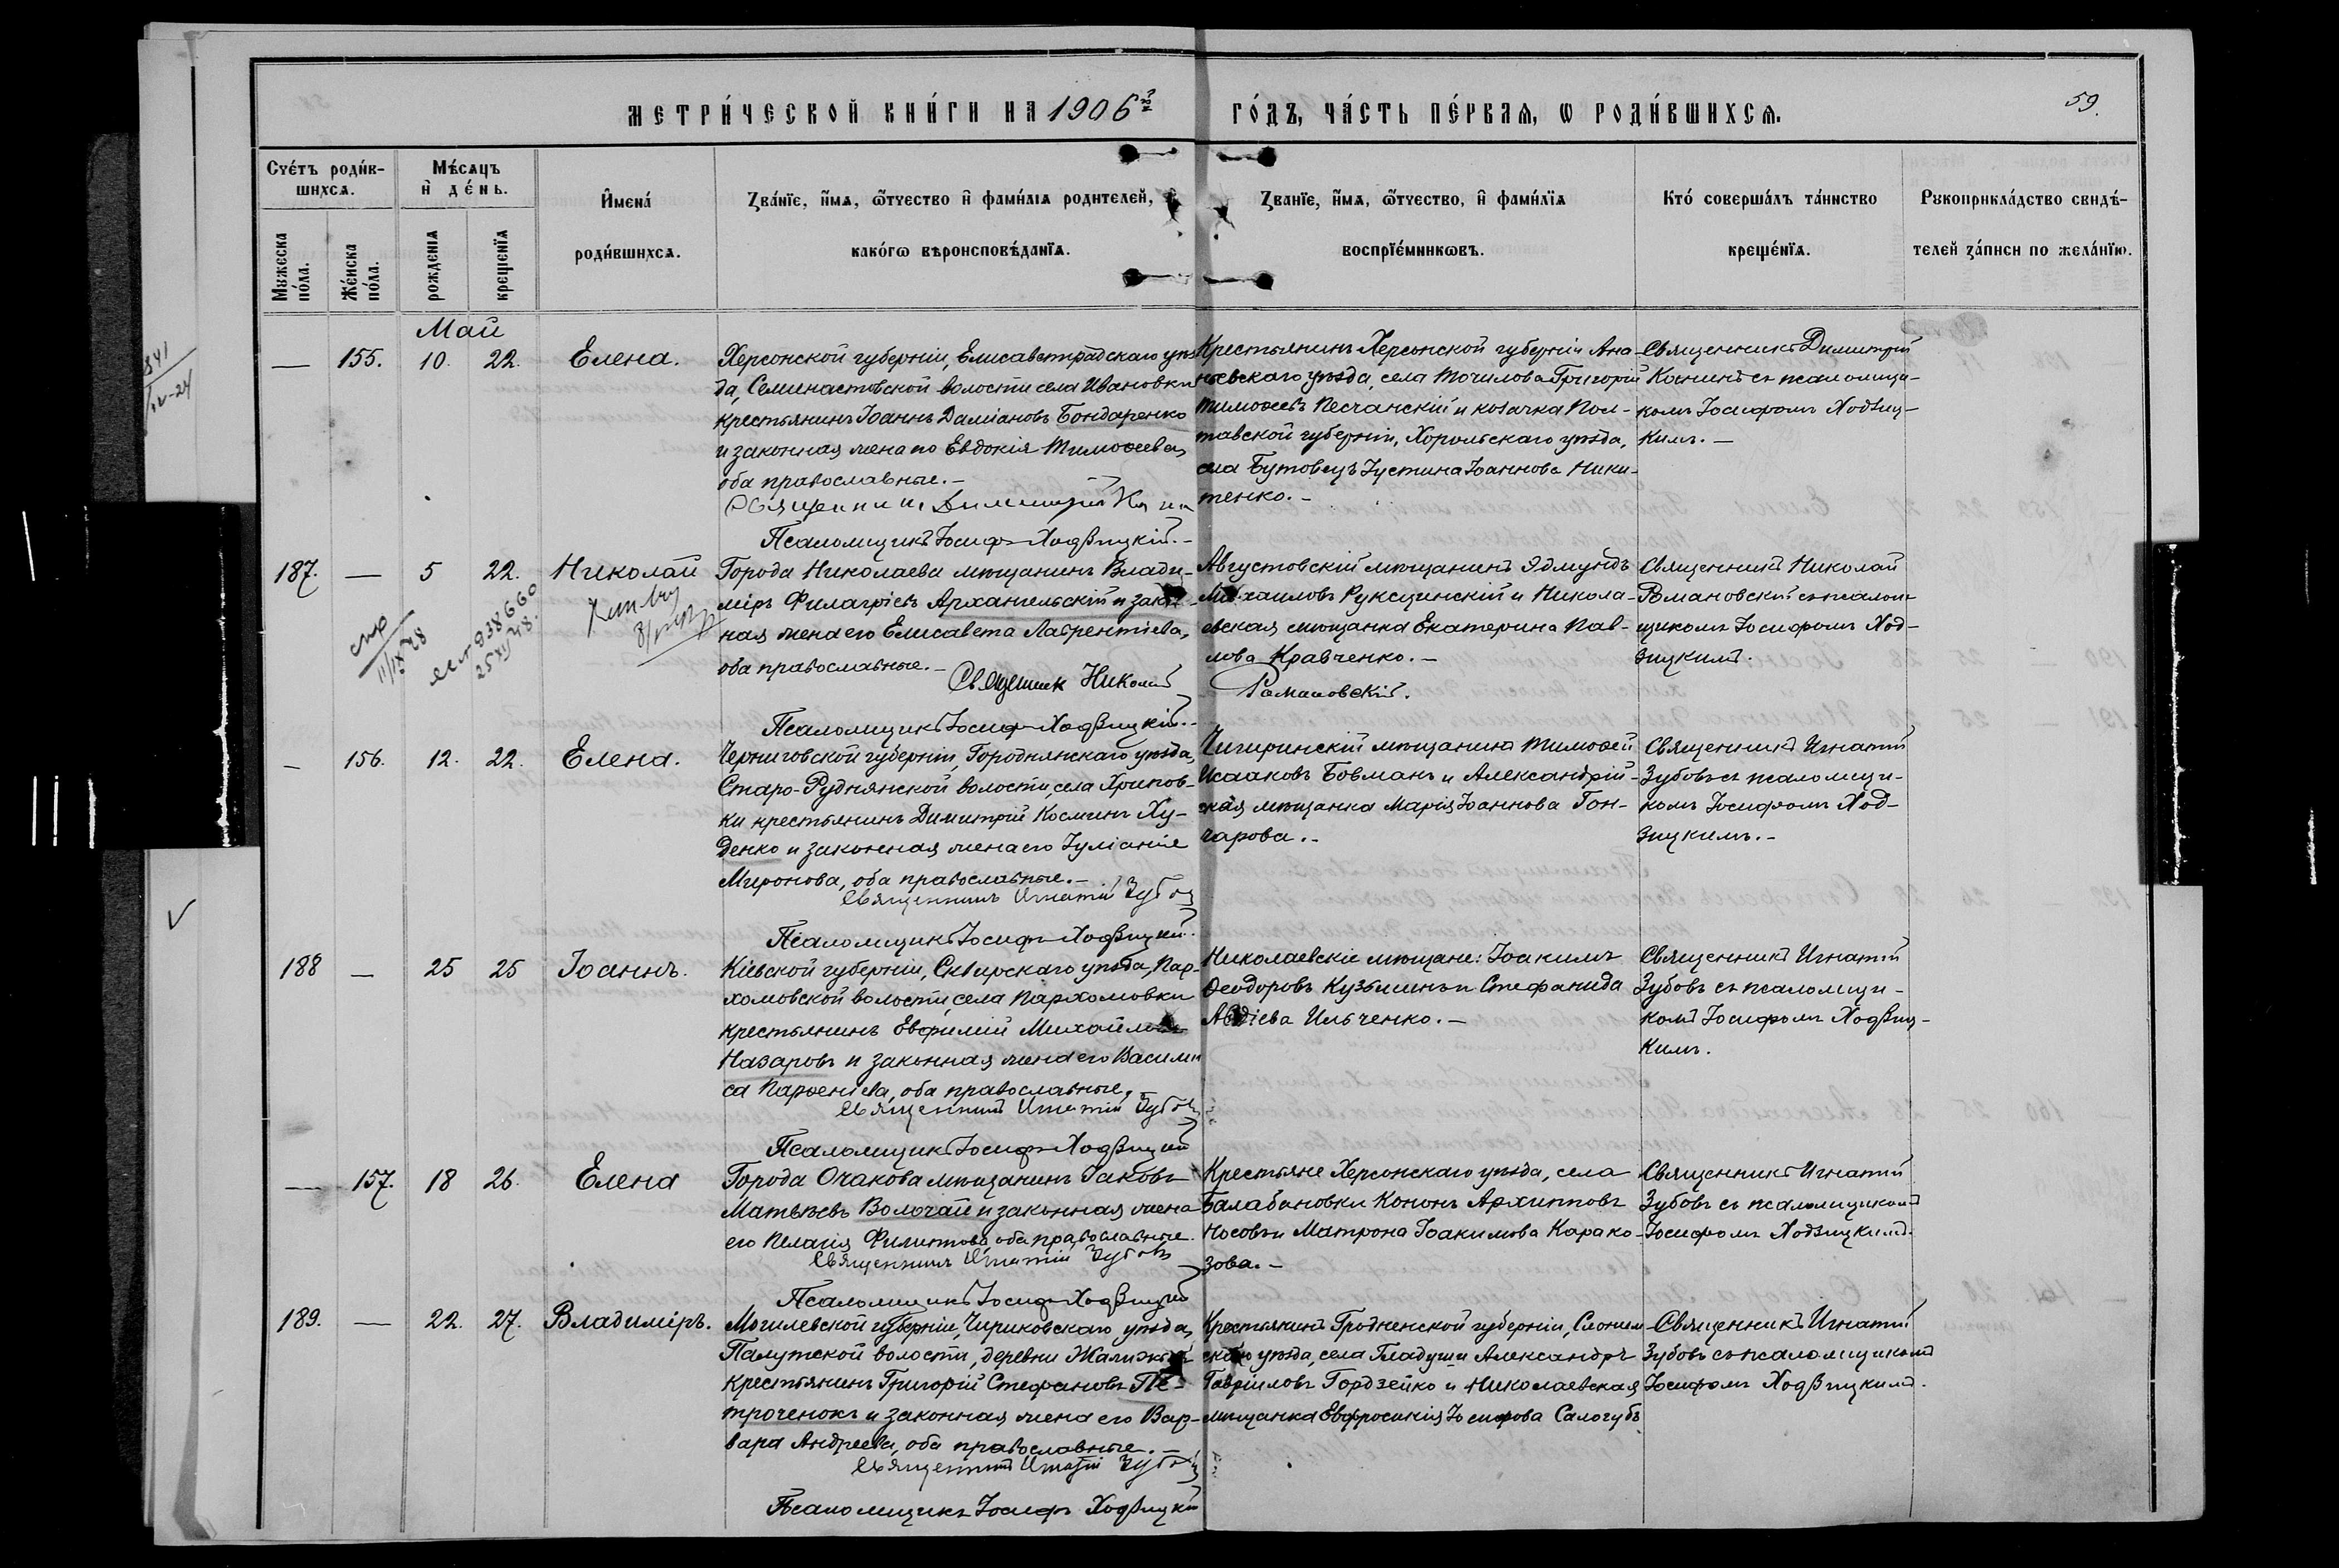 МЕТРИ́ЧЕСКОЙ КНИ́ГИ НА 1906й ГО́ДЪ, ЧА́СТЬ ПЕ́РВАЯ, Ѡ РОДИ́ВШИХСЯ.
59.
Сче́тъ роди́в-
шихся.
Мужеска по́ла.
Же́нска по́ла.
Мѣ́сяцъ
и҆ де́нь.
рожденія
крещенїя
И҆мена́
роди́вшихся.
Зва́нїе, и҆́мя, ѻ҆́тчество и҆ фами́лія родителей, и҆
како́гѡ вѣроисповѣ́данїя.
Званїе, и҆́мя, ѻ҆́тчество, и҆ фами́лїя
воспрїе́мниковъ.
Кто́ соверша́лъ та́инство
креще́нїя.
Рукоприкла́дство свидѣ́-
телей за́писи по жела́нїю.
Май
— 155. 10. 22. Елена.
Херсонской губерніи, Елисаветградскаго уѣз
да, Семенастовской волости села Ивановки
крестьянинъ Іоаннъ Даміановъ Бондаренко
и законная жена по Евдокія Тимоѳеева,
оба православные.—
Священникъ Димитрій
Псаломщикъ Іосифъ Ходзицкій.—
Крестьянинъ Херсонской губерніи Ана-
ньевскаго уѣзда, села Точилова Григорій
Тимоѳеевъ Песчанскій и козачка Пол-
тавской губерніи, Хорольскаго уѣзда,
села Бутовецъ Іустина Іоаннова Ники-
тенко.—
Священникъ Димитрій
Коснинъ съ псаломщи-
комъ Іосифомъ Ходзиц-
кимъ.—
187. — 5 22. Николай
Города Николаева мѣщанинъ Влади-
міръ Филагріевъ Архангельскій и закон-
ная жена его Елисавета Лаврентіева,
оба православные.—
Священник Николай Романовскій.
Псаломщикъ Іосифъ Ходзицкій.—
Августовскій мѣщанинъ Эдмундъ
Михаиловъ Руксцинскій и Никола-
евская мѣщанка Екатерина Пав-
лова Кравченко.—
Священникъ Николай
Романовскій съ псалом-
щикомъ Іосифомъ Ход-
зицкимъ.
938660
— 156. 12. 22. Елена.
Черниговской губерніи, Городнянскаго уѣзда,
Старо-Руднянской волости, села Хрипов-
ки крестьянинъ Димитрій Косминъ Ху-
денко и законная жена его Іуліанія
Миронова, оба православные.—
Священникъ Игнатій Зубовъ
Псаломщикъ Іосифъ Ходзицкій.
Чигиринскій мѣщанинъ Тимоѳей
Исааковъ Бовманъ и Александрій-
ская мѣщанка Марія Іоаннова Гон-
чарова.—
Священникъ Игнатій
Зубовъ съ псаломщи-
комъ Іосифомъ Ход-
зицкимъ.—
188 — 25 25 Іоаннъ.
Кіевской губерніи, Сквирскаго уѣзда, Пар-
хомовской волости, села Пархомовки
крестьянинъ Евфимій Михайловъ
Назаровъ и законная жена его Васили
са Парѳеніева, оба православные.
Священникъ Игнатій Зубовъ
Псаломщикъ Іосифъ Ходзицкій
Николаевскіе мѣщане: Іоакимъ
Ѳеодоровъ Кузьминъ и Стефанида
Авдіева Ильченко.—
Священникъ Игнатій
Зубовъ съ псаломщи-
комъ Іосифомъ Ходзиц-
кимъ.
— 157. 18 26. Елена
Города Очакова мѣщанинъ Іаковъ
Матвѣевъ Волочай и законная жена
его Пелагія Филиппова, оба православные.
Священникъ Игнатій Зубовъ
Псаломщикъ Іосифъ Ходзицкій
Крестьяне Херсонскаго уѣзда, села
Балабановки Кононъ Архипповъ
Носовъ и Матрона Іоакимова Карако-
зова.—
Священникъ Игнатій
Зубовъ съ псаломщикомъ
Іосифомъ Ходзицкимъ.
189. — 22. 27. Владиміръ.
Могилевской губерніи, Чириковскаго уѣзда,
Палужской волости, деревни
крестьянинъ Григорій Стефановъ Пе-
троченокъ и законная жена его Вар-
вара Андреева, оба православные.—
Священникъ Игнатій Зубовъ
Псаломщикъ Іосифъ Ходзицкій
Крестьянинъ Гродненской губерніи, Слоним-
скаго уѣзда, села Гладуши Александръ
Гавріиловъ Гордзейко и Николаевская
мѣщанка Евфросинія Іосифова Салогубъ
Священникъ Игнатій
Зубовъ съ псаломщикомъ
Іосифомъ Ходзицкимъ.